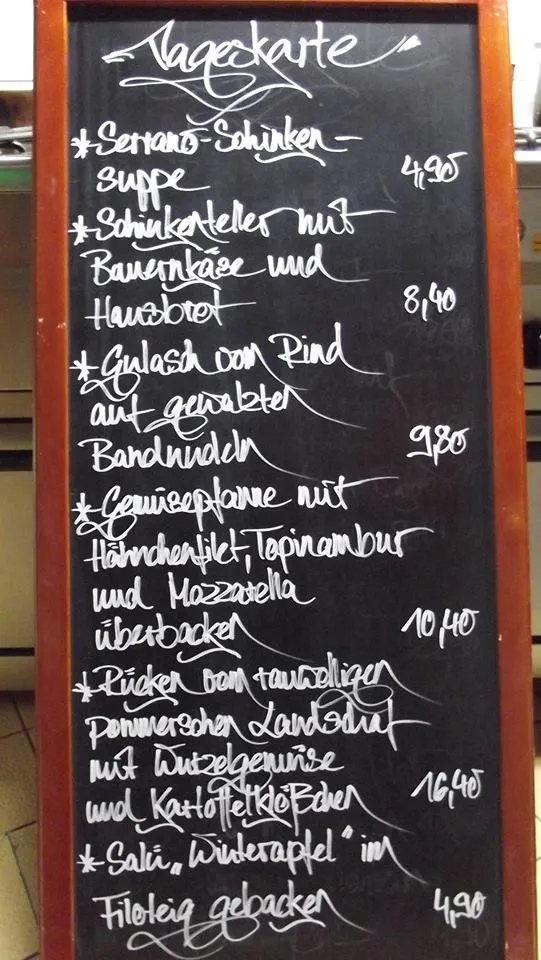 Tageskarte
* Serrano-Schinken-
suppe 4,90
* Schinkenteller mit
Bauernkäse und
Hausbrot 8,40
* Gulasch vom Rind
auf gewalzten
Bandnudeln 9,80
* Gemüsepfanne mit
Hähnchenfilet, Topinambur
und Mozzarella
überbacken 10,40
* Rücken vom rauwolligen
pommerschen Landschaf
mit Wurzelgemüse
und Kartoffelklößchen 16,40
* Salü „Winterapfel" im
Filoteig gebacken 4,90